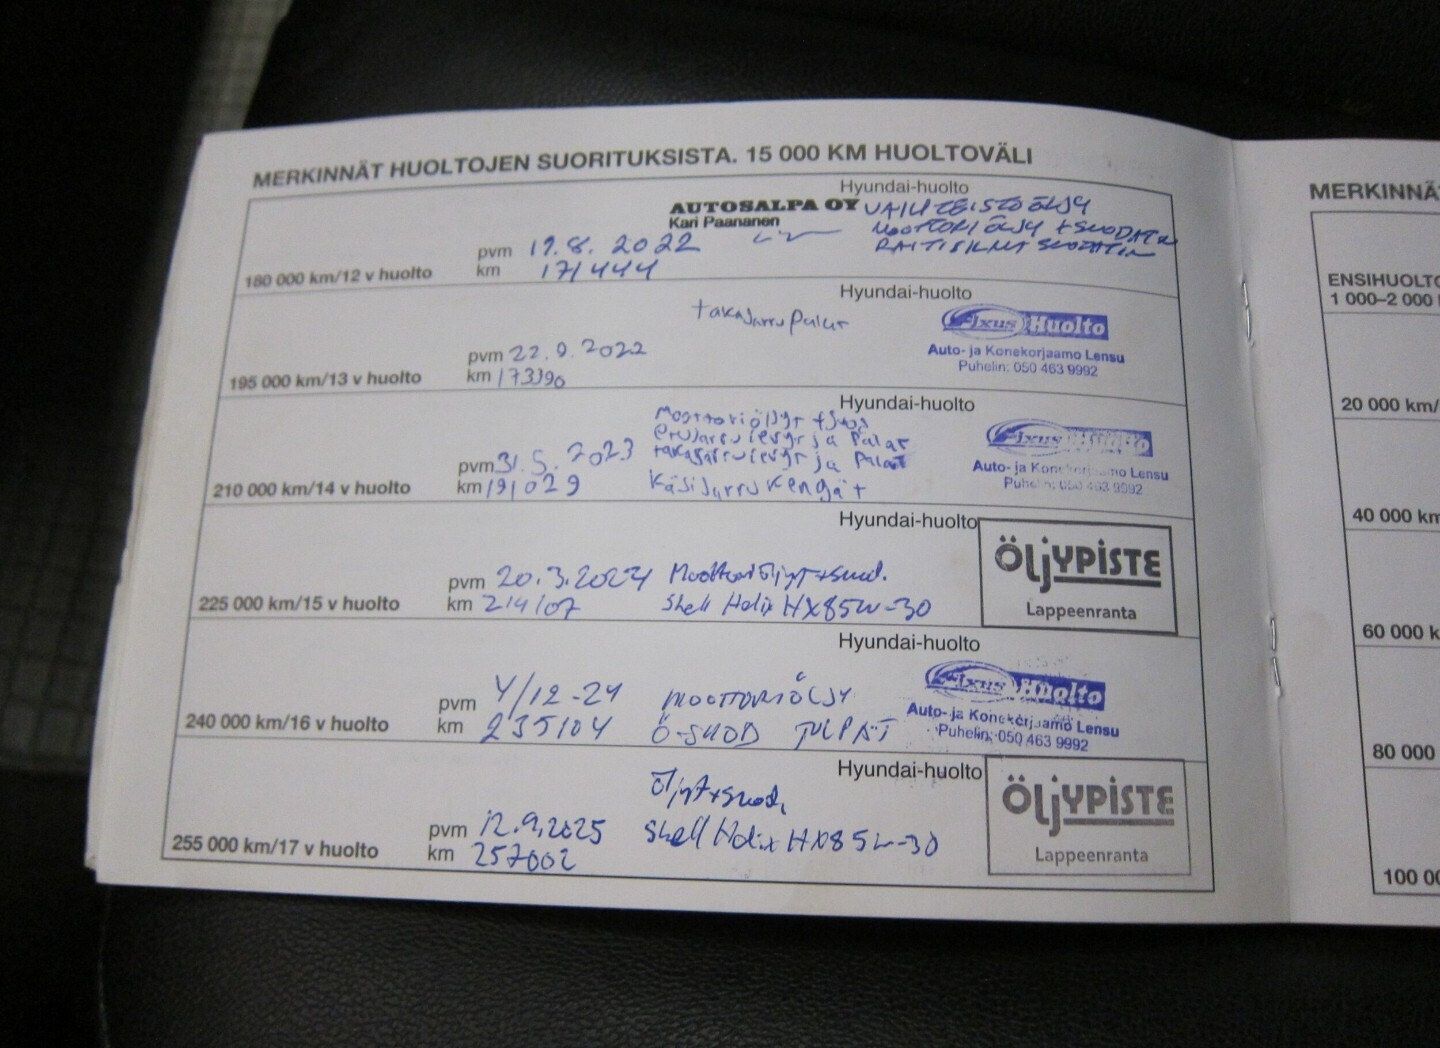 MERKINNÄT HUOLTOJEN SUORITUKSISTA. 15 000 KM HUOLTOVÄLI
Hyundai-huolto
AUTOSALPA OY
Kari Paananen
VAIHTEISTOÖLJY
MOOTTORIÖLJY + SUODATIN
RAITISILMA SUODATIN
pvm 19.8. 2022
km 171444
180 000 km/12 v huolto
Hyundai-huolto
takajarrupalat
Fixus Huolto
Auto- ja Konekorjaamo Lensu
Puhelin: 050 463 9992
pvm 22.9.2022
km 173390
195 000 km/13 v huolto
Hyundai-huolto
Moottoriöljyt + suod
etujarrulevyt ja Palat
takajarrulevyt ja Palat
Käsijarrukengät
Fixus Huolto
Auto- ja Konekorjaamo Lensu
Puhelin: 050 463 9992
pvm 31.5.2023
km 191029
210 000 km/14 v huolto
Hyundai-huolto
ÖLJYPISTE
Lappeenranta
pvm 20.3.2024 Moottoriöljyt+suod.
km 214107 Shell Helix HX8 5W-30
225 000 km/15 v huolto
Hyundai-huolto
Fixus Huolto
Auto- ja Konekorjaamo Lensu
Puhelin: 050 463 9992
pvm 4/12-24 MOOTTORIÖLJY
km 235104 Ö-SUOD TULPAT
240 000 km/16 v huolto
Hyundai-huolto
ÖLJYPISTE
Lappeenranta
Öljyt+suod.
pvm 12.9.2025 Shell Helix HX8 5W-30
km 257002
255 000 km/17 v huolto
MERKINNÄ
ENSIHUOLTO
1 000–2 000
20 000 km/
40 000 km
60 000 k
80 000
100 00